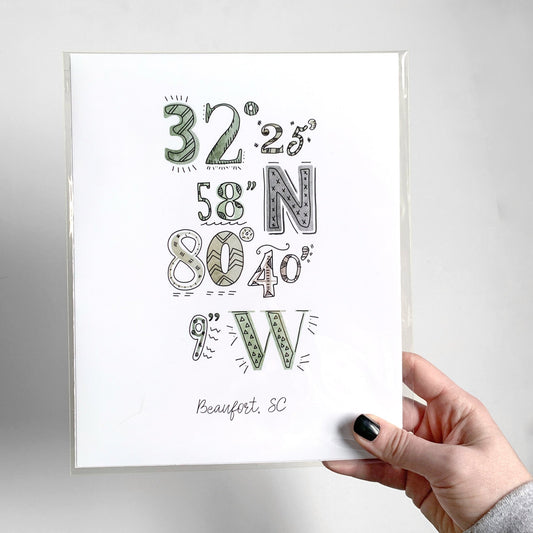 32° 25'
58" N
80° 40'
9" W
Beaufort, SC